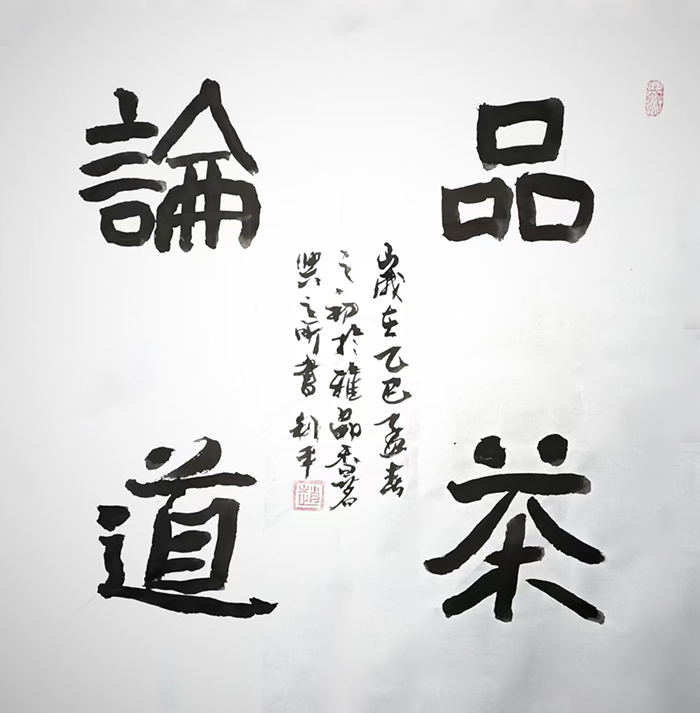 品茶
論道
歲在乙巳孟春
之初於雅品香茗
興之所書
趙